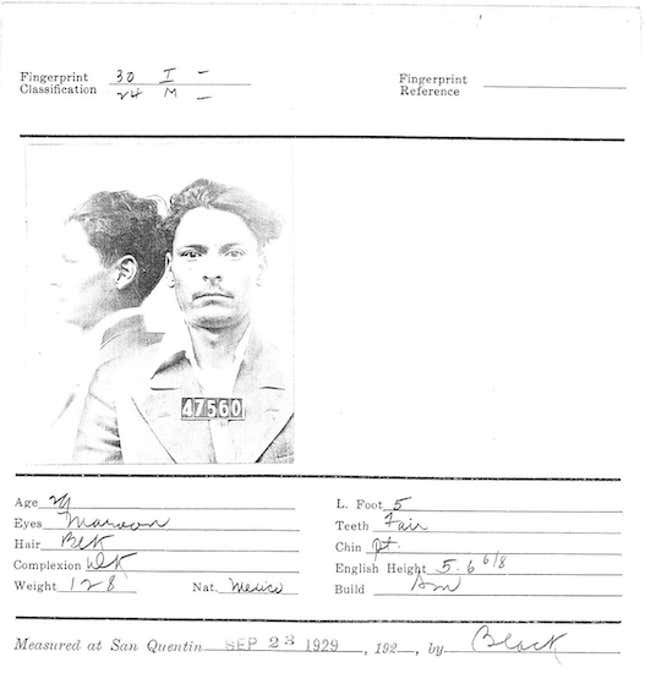 Fingerprint Classification 30 I –
24 M –
Fingerprint Reference
47560
Age
Eyes Maroon
Hair Blk
Complexion Dk
Weight 128 Nat. Mexico
L. Foot 5
Teeth Fair
Chin pt.
English Height 5. 6 6/8
Build Sm
Measured at San Quentin SEP 23 1929, 192 , by Black